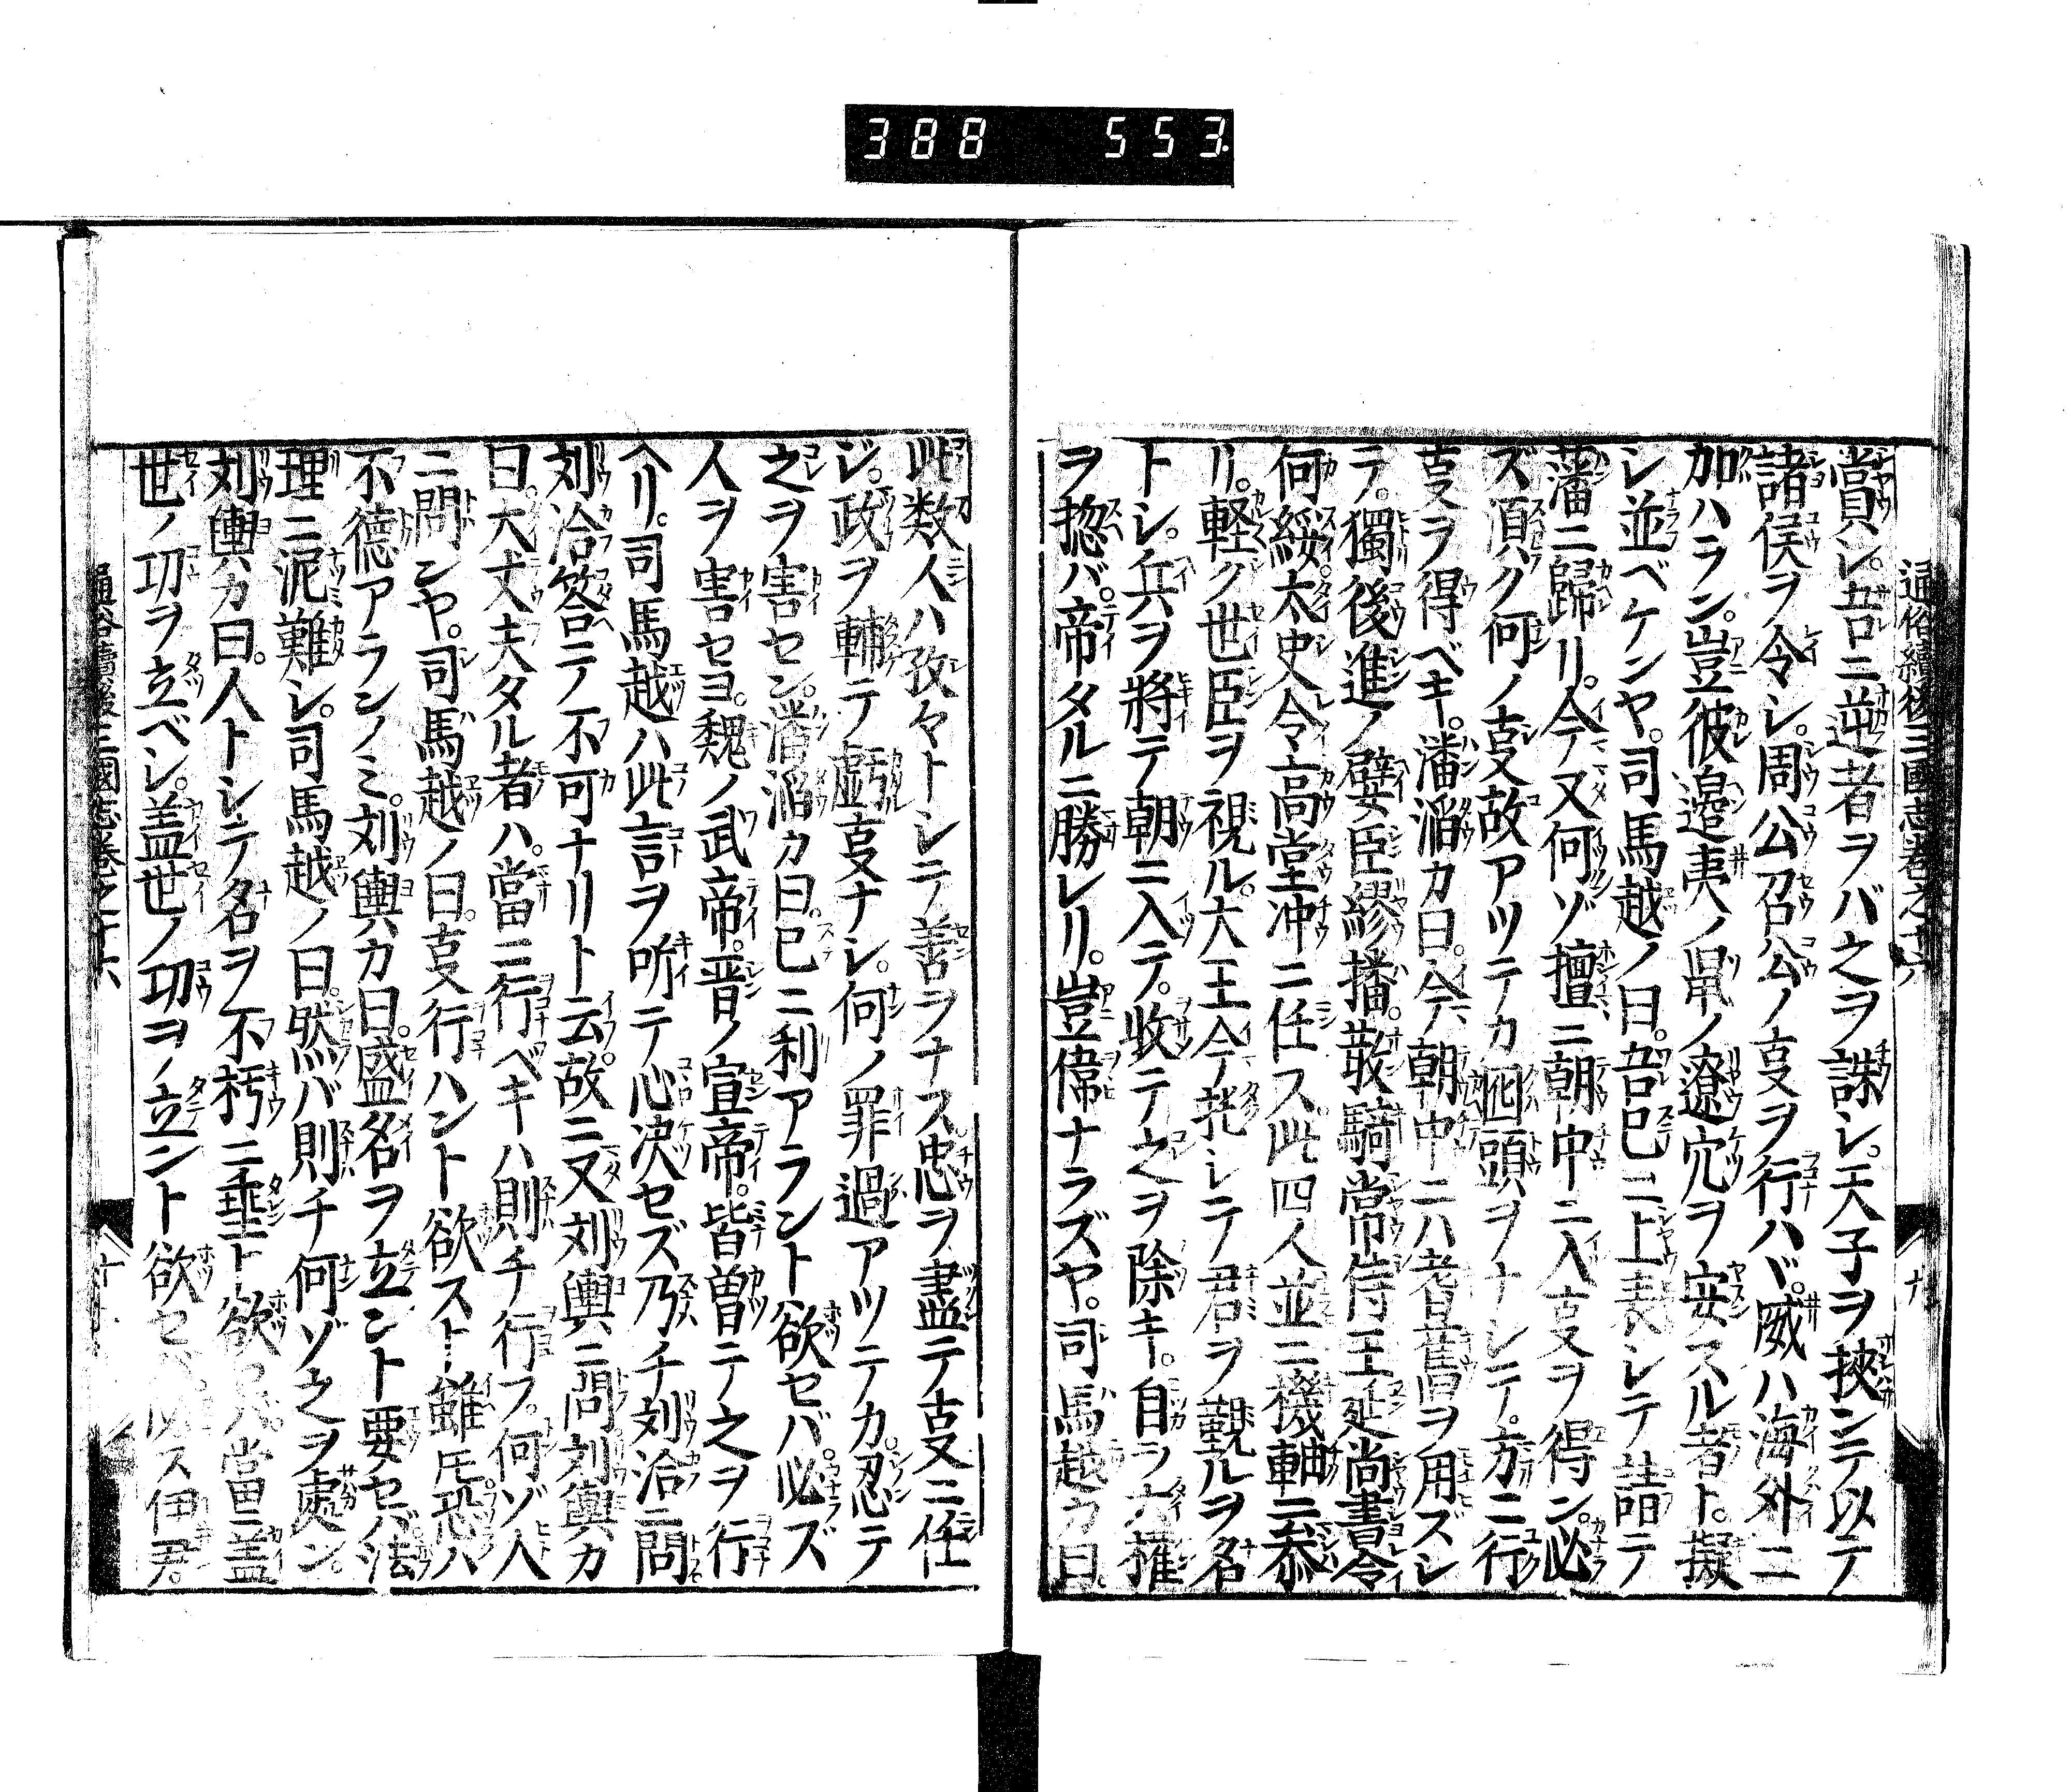 388 553.
通俗續後三國志巻之十六
賞シ吾ニ逆者ヲバ之ヲ誅シ。天子ヲ挾ンテ以テ
諸侯ヲ令シ。周公召公ノ㕝ヲ行ハバ。威ハ海外ニ
加ハラン。豈彼邉夷ノ鼠ノ遼穴ヲ安スル者ト。擬
シ並ベケンヤ。司馬越ノ曰。吾已ニ上表シテ詰テ
藩ニ歸リ。今又何ゾ擅ニ朝中ニ入㕝ヲ得ン。必
ズ湏ク何ノ㕝故アツテカ囬頭ヲナシテ。方ニ行
㕝ヲ得ベキ。潘滔カ曰。今朝中ニハ耆舊ヲ用ズシ
テ。獨後進ノ嬖臣繆播。散騎常侍王延尚書令
何綏太史令高堂冲ニ任ス此四人並ニ機軸ニ叅
リ。軽ク世臣ヲ視ル。大王今託シテ君ヲ覲ルヲ名
トシ。兵ヲ將テ朝ニ入テ。收テ之ヲ除キ。自ラ大權
ヲ揔バ。帝タルニ勝レリ。豈偉ナラズヤ。司馬越カ曰。
此数人ハ孜々トシテ善ヲナス忠ヲ盡テ㕝ニ任
ジ。政ヲ輔テ虧㕝ナシ。何ノ罪過アツテカ忍テ
之ヲ害セン。潘滔カ曰。已ニ利アラント欲セバ。必ズ
人ヲ害セヨ。魏ノ武帝。晋ノ宣帝。皆曽テ之ヲ行
ヘリ。司馬越ハ此言ヲ听テ心决セズ乃チ刘洽ニ問
刘洽答テノ不可ナリト云故ニ又刘輿ニ問刘輿カ
曰。大丈夫タル者ハ。當ニ行ベキハ則チ行フ。何ゾ人
ニ問ンヤ。司馬越ノ曰。㕝行ハント欲スト雖𪜈恐ハ
不德アランノミ。刘輿カ曰。盛名ヲ立ント要セバ法
理ニ泥難シ。司馬越ノ曰。然バ則チ何ゾ之ヲ處ン。
刘輿カ曰。人トシテ名ヲ不朽ニ垂ト欲セバ。當ニ盖
世ノ功ヲ立ベシ。盖世ノ功ヲノ立ント欲セバ。必ス伊尹。
通俗續後三國志巻之十六